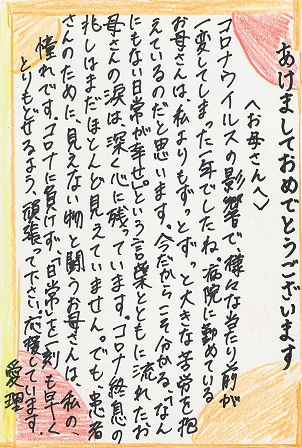 あけましておめでとうございます
〈お母さんへ〉
コロナウイルスの影響で、様々な当たり前が
一変してしまった一年でしたね。病院に勤めている
お母さんは、私よりもずっとずっと大きな苦労を抱
えているのだと思います。今だからこそ分かる。「なん
にもない日常が幸せ」という言葉とともに流れたお
母さんの涙は深く心に残っています。コロナ終息の
兆しはまだほとんど見えていません。でも、患者
さんのために、見えない物と闘うお母さんは、私の
憧れです。コロナに負けず、「日常」を一刻も早く
とりもどせるよう、頑張って下さい。応援しています。
愛理